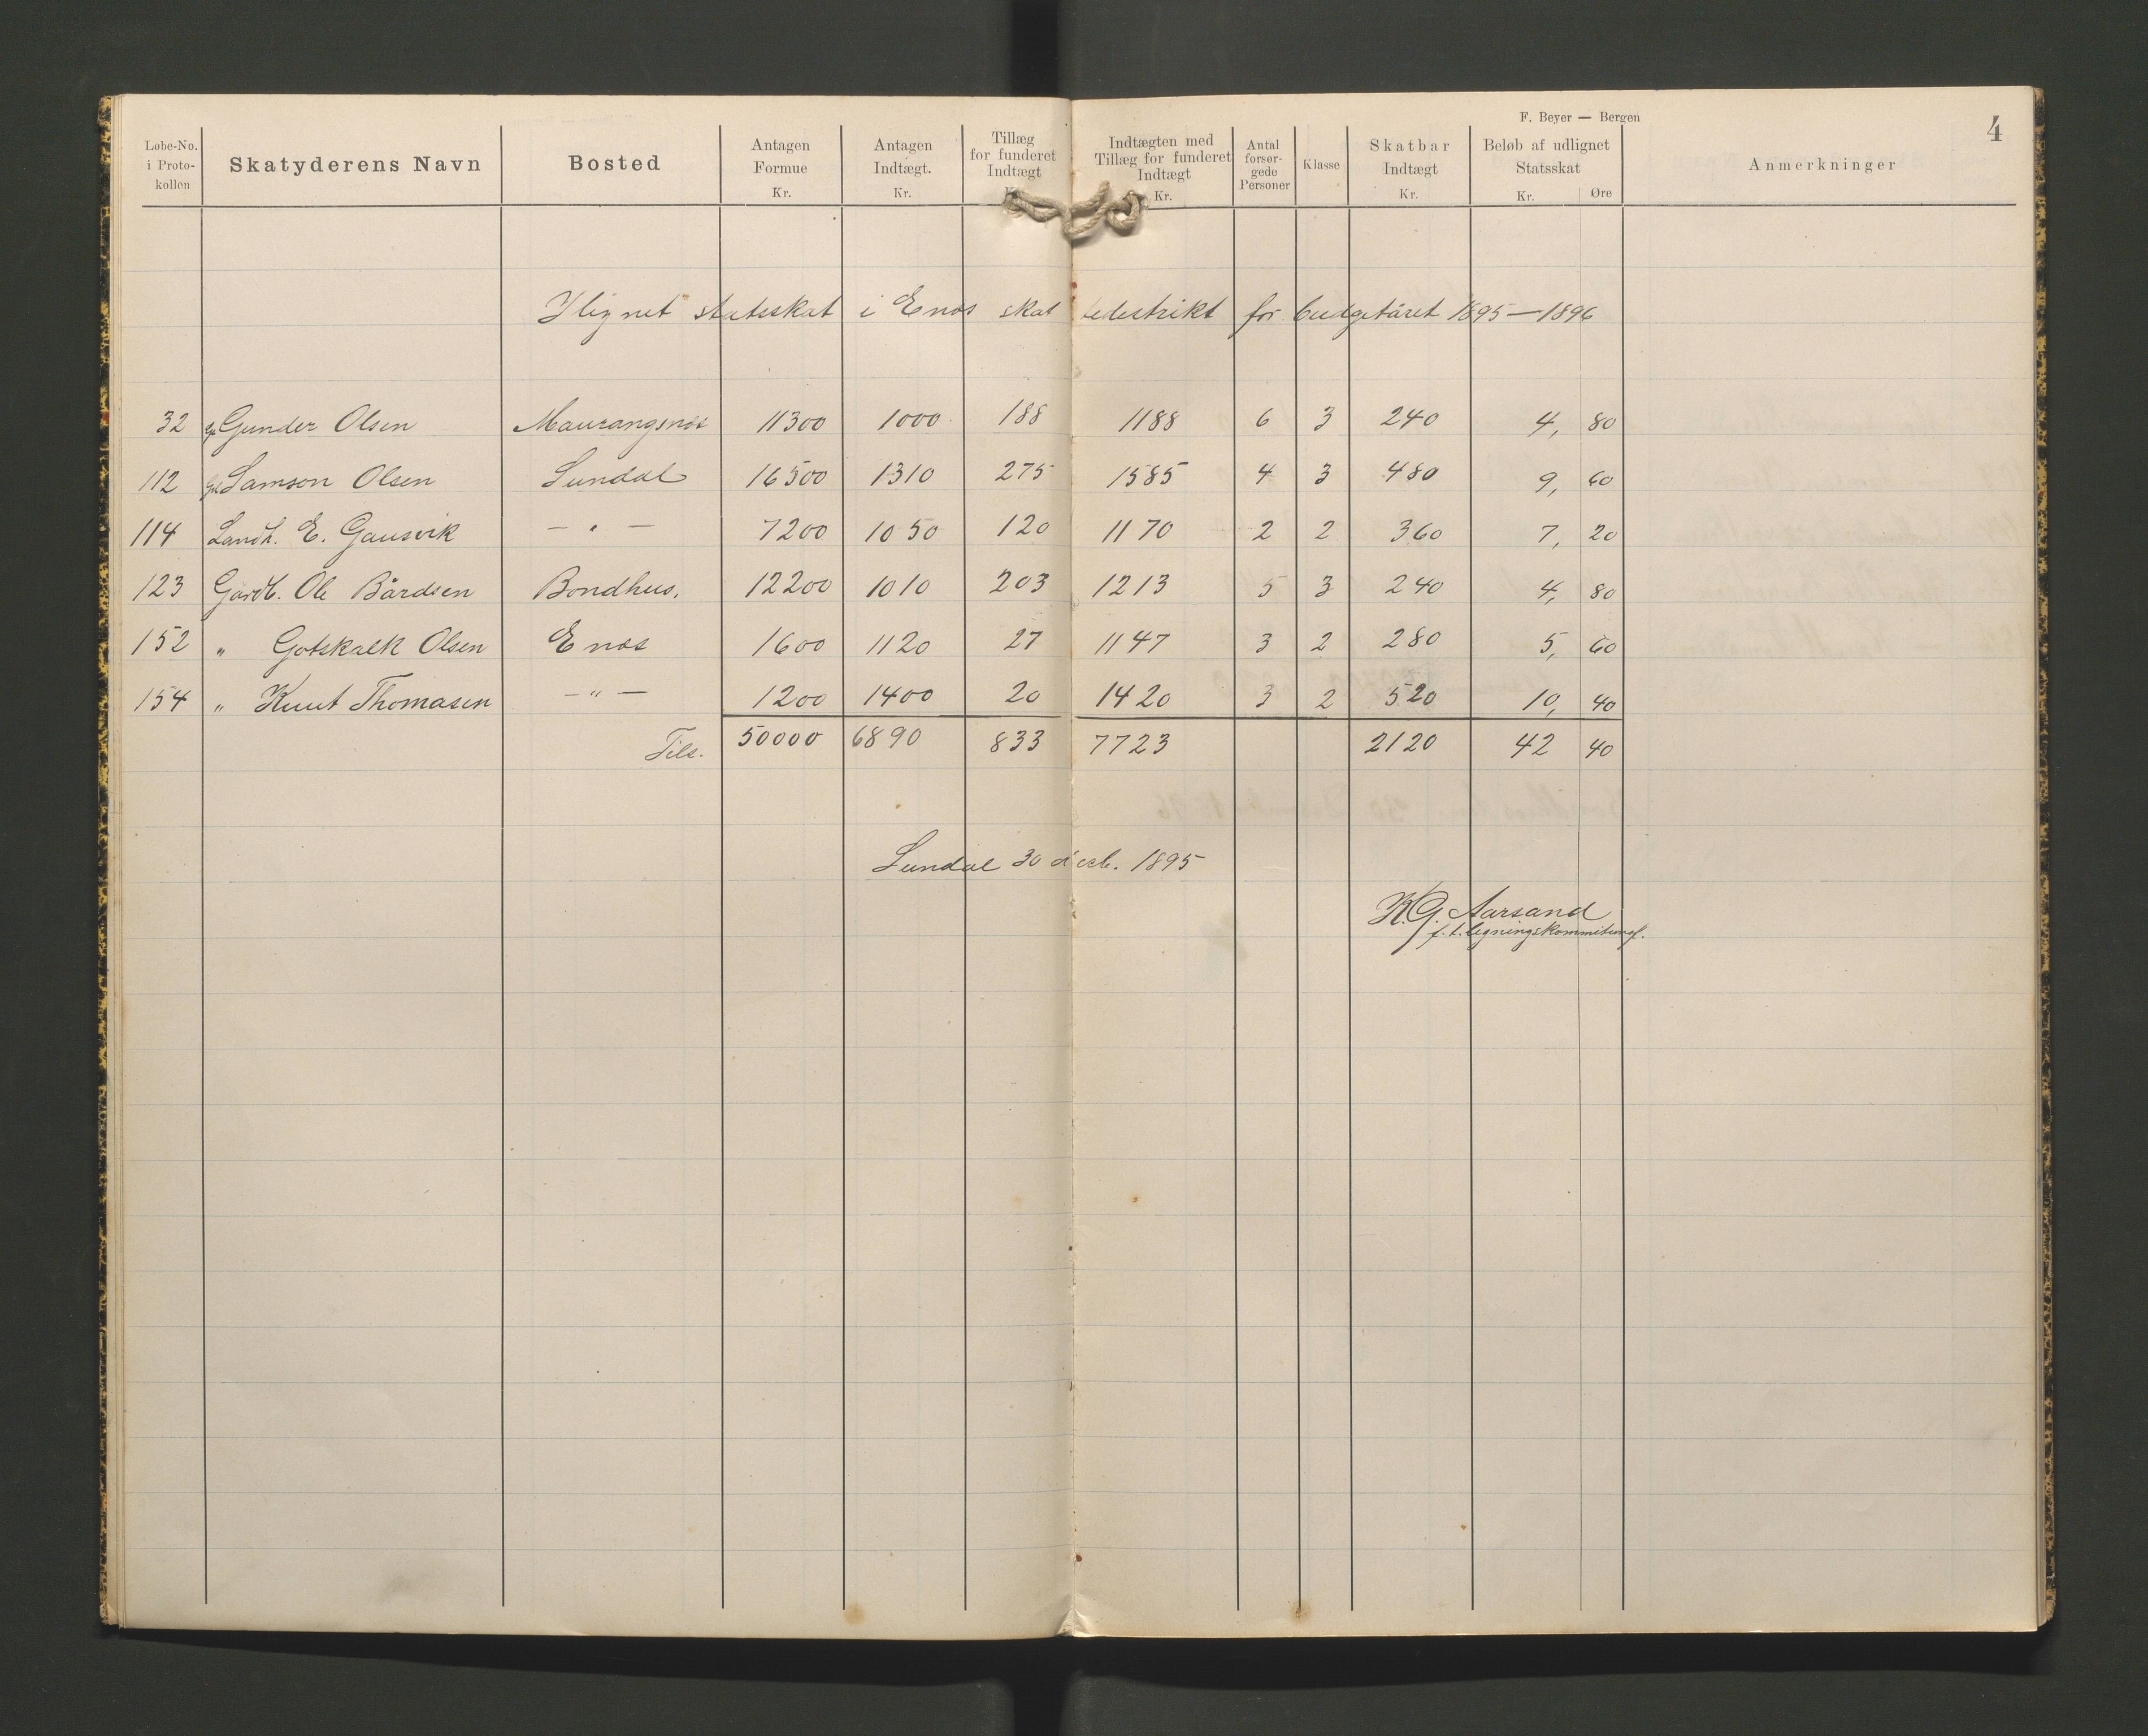 F. Beyer — Bergen
4
Løbe-No. i Proto-kollen Skatyderens Navn Bosted Antagen Formue Kr. Antagen Indtægt. Kr. Tillæg for funderet Indtægt Kr. Indtægten med Tillæg for funderet Indtægt Kr. Antal forsør-gede Personer Klasse Skatbar Indtægt Kr. Beløb af udlignet Statsskat Kr. Øre Anmerkninger
Ilignet statsskat i Enæs skattedestrikt for budgetåret 1895—1896
32 Gunder Olsen Maurangsnæs 11300 1000 188 1188 6 3 240 4, 80
112 Samson Olsen Sundal 16500 1310 275 1585 4 3 480 9, 60
114 Landh. E. Gausvik — " — 7200 1050 120 1170 2 2 360 7, 20
123 Gardb. Ole Bårdsen Bondhus. 12200 1010 203 1213 5 3 240 4, 80
152 " Gotskalk Olsen Enæs 1600 1120 27 1147 3 2 280 5, 60
154 " Knut Thomasen — " — 1200 1400 20 1420 3 2 520 10, 40
Tils. 50000 6890 833 7723 2120 42 40
Sundal 30 decb. 1895
K. G. Aarsand
f. t. ligningskommitionsf.